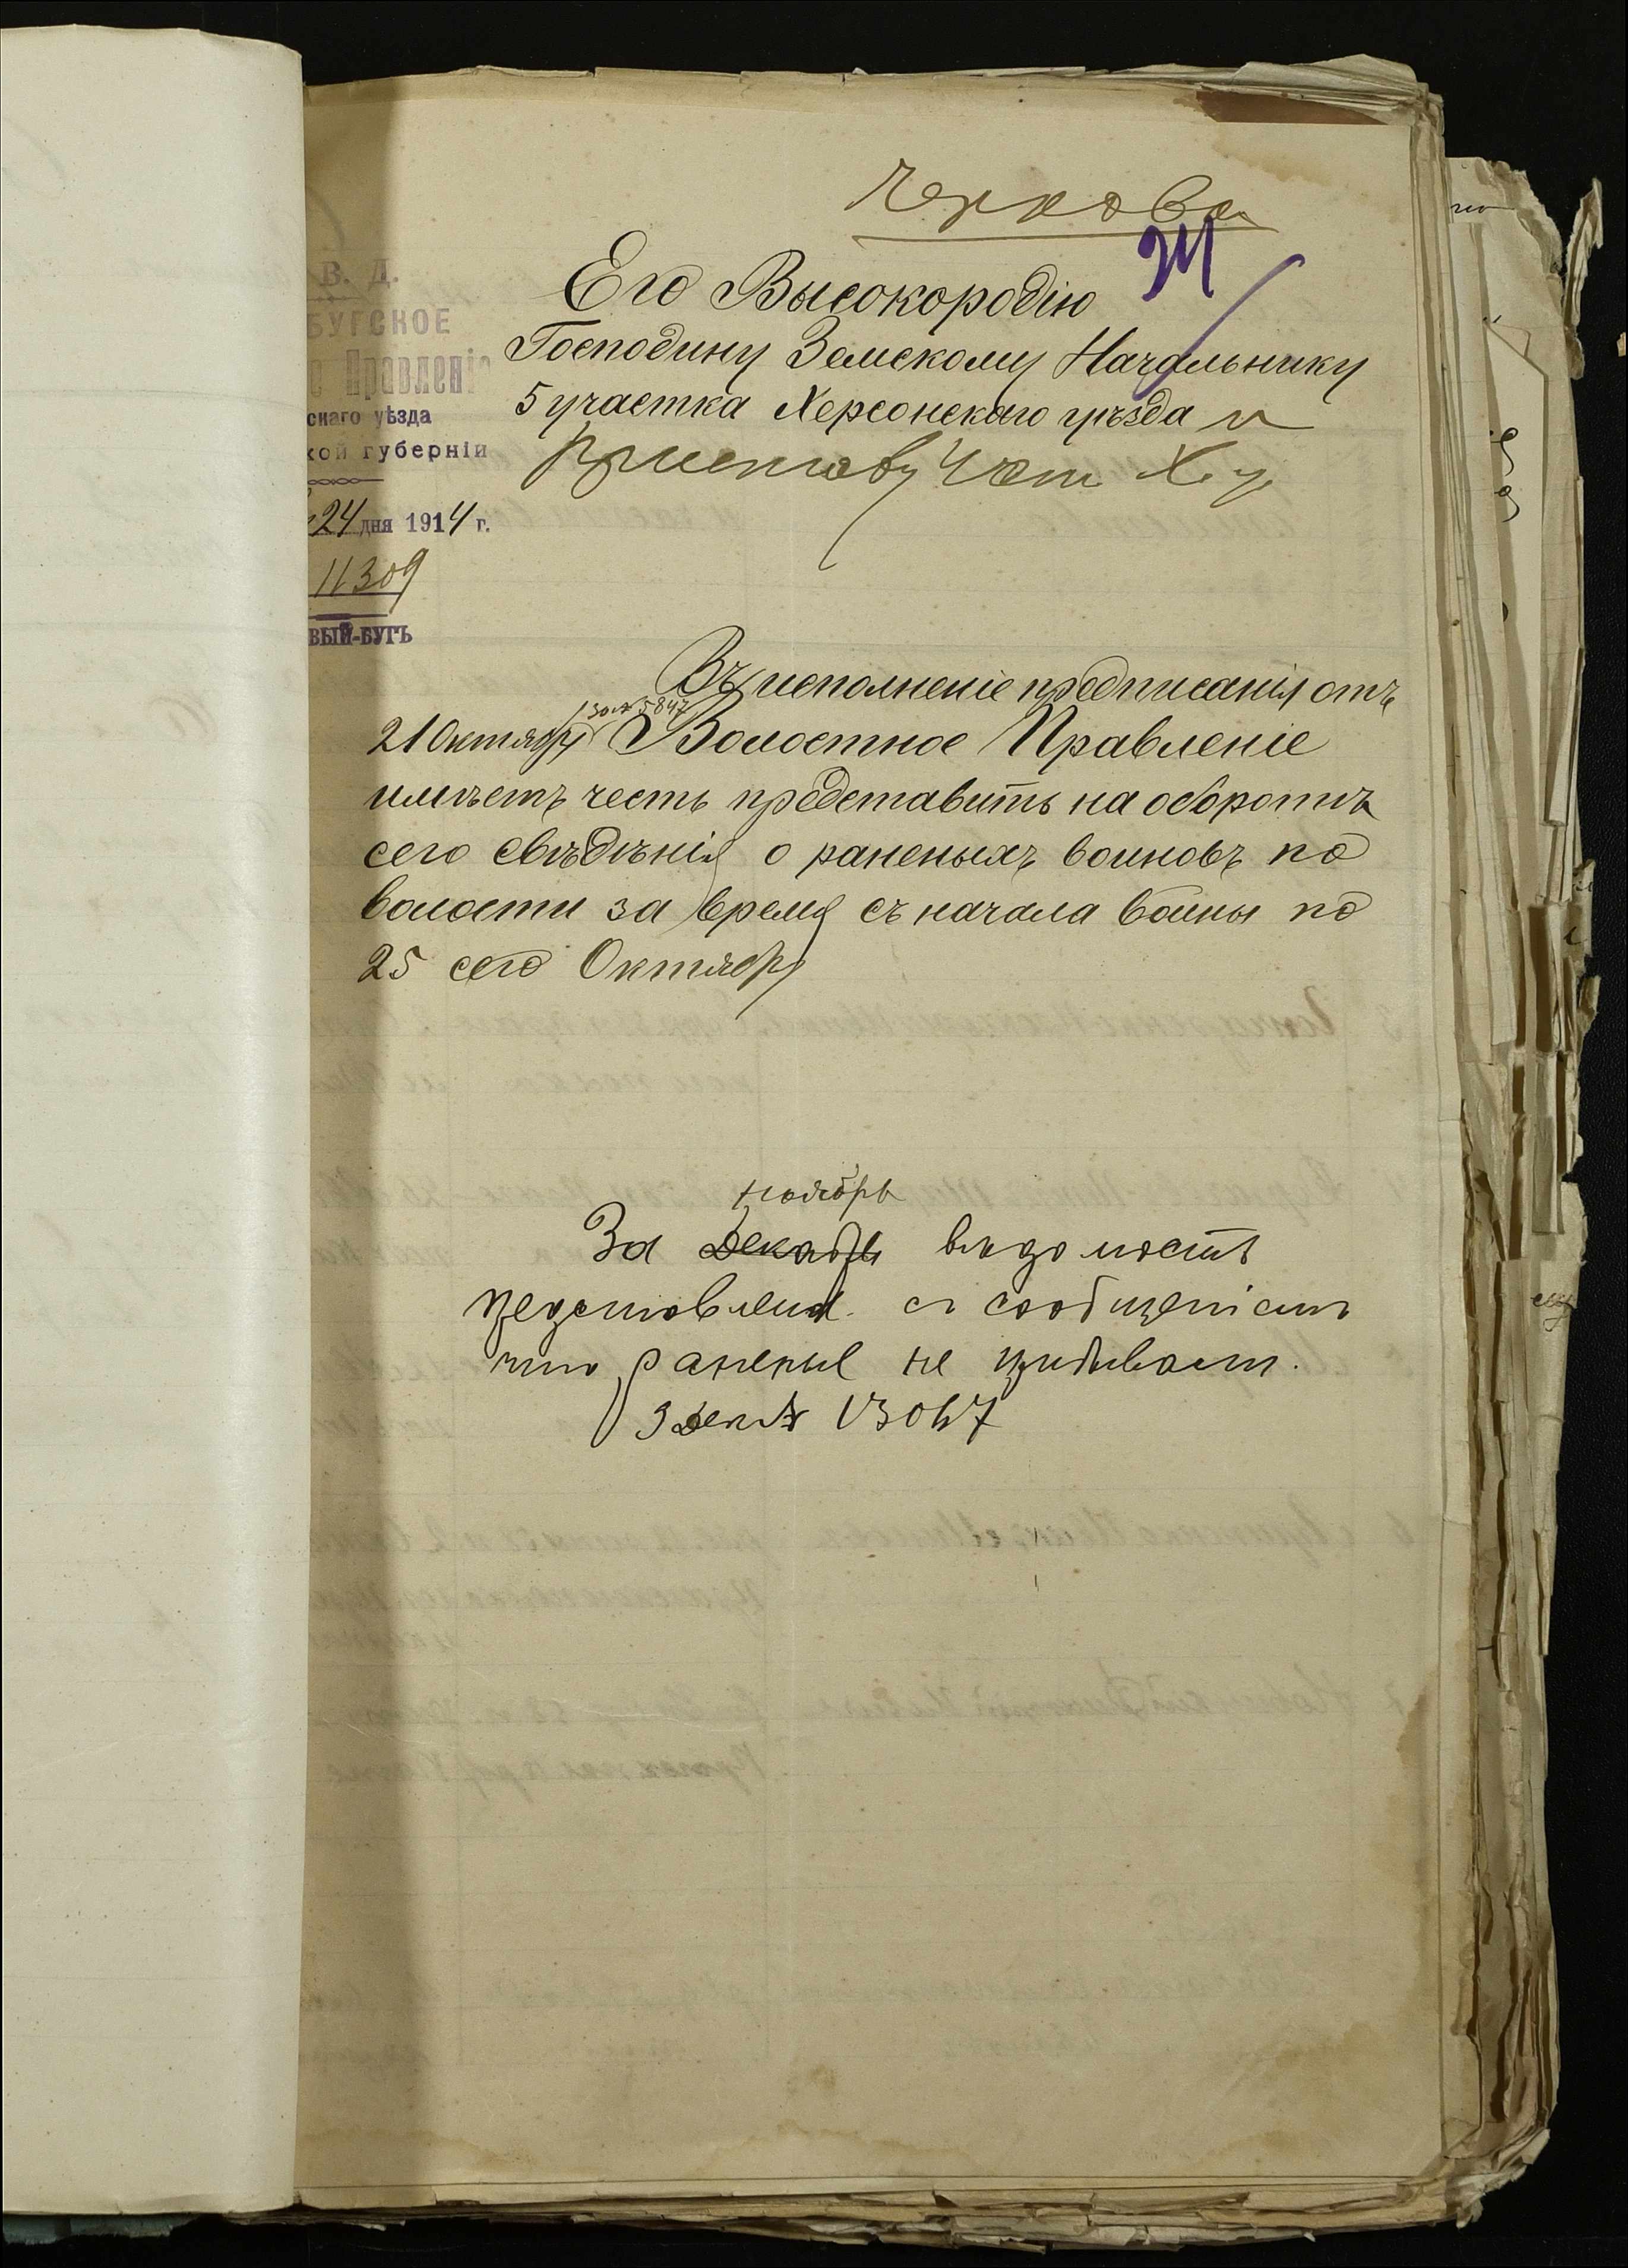 Черкова
24
В. Д.
БУГСКОЕ
Правленіе
скаго уѣзда
кой губерніи
24 дня 1914 г.
11309
ВЫЙ-БУГЪ
Его Высокородію
Господину Земскому Начальнику
5 участка Херсонскаго уѣзда и
Приставу 4 ст Х. у.
Въ исполненіе предписанія отъ
за № 5847
21 Октября Волостное Правленіе
имѣетъ честь представить на оборотѣ
сего свѣдѣнія о раненыхъ воиновъ по
волости за время съ начала войны по
25 сего Октября
Ноябрь
За Декабрь вѣдомость
представлена съ сообщеніемъ
что раненые не прибывали.
3 Дек №